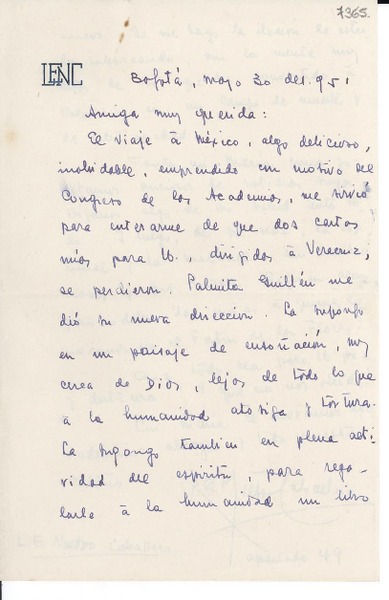 7365.
LENC
Bogotá, mayo 30 del 951
Amiga muy querida:
El viaje á México, algo delicioso,
inolvidable, emprendido con motivo del
Congreso de las Academias, me sirvió
para enterarme de que dos cartas
mías para U., dirigidas á Veracruz,
se perdieron. Palmita Guillén me
dió su nueva dirección. La supongo
en un paisaje de ensoñación, muy
cerca de Dios, lejos de todo lo que
á la humanidad atosiga y tortura.
La supongo también en plena acti-
vidad del espíritu, para rega-
larle á la humanidad un libro